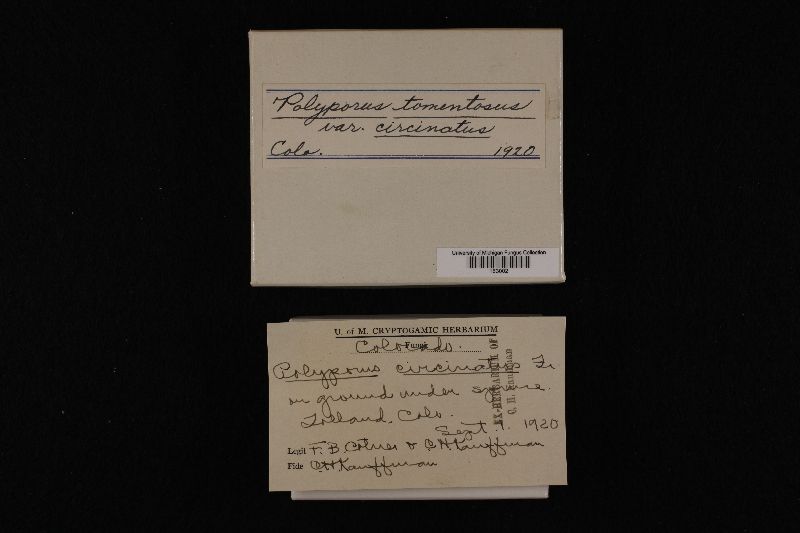 Polyporus tomentosus
var. circinatus
Colo. 1920
University of Michigan Fungus Collection
U. of M. CRYPTOGAMIC HERBARIUM
Fungi
Colorado.
Polyporus circinatus Fr
on ground under spruce.
Tolland, Colo.
Sept. 1. 1920
Legit F. B. Cotner & C H Kauffman
Fide C. H. Kauffman
EX-HERBARIUM OF
C. H. Kauffman